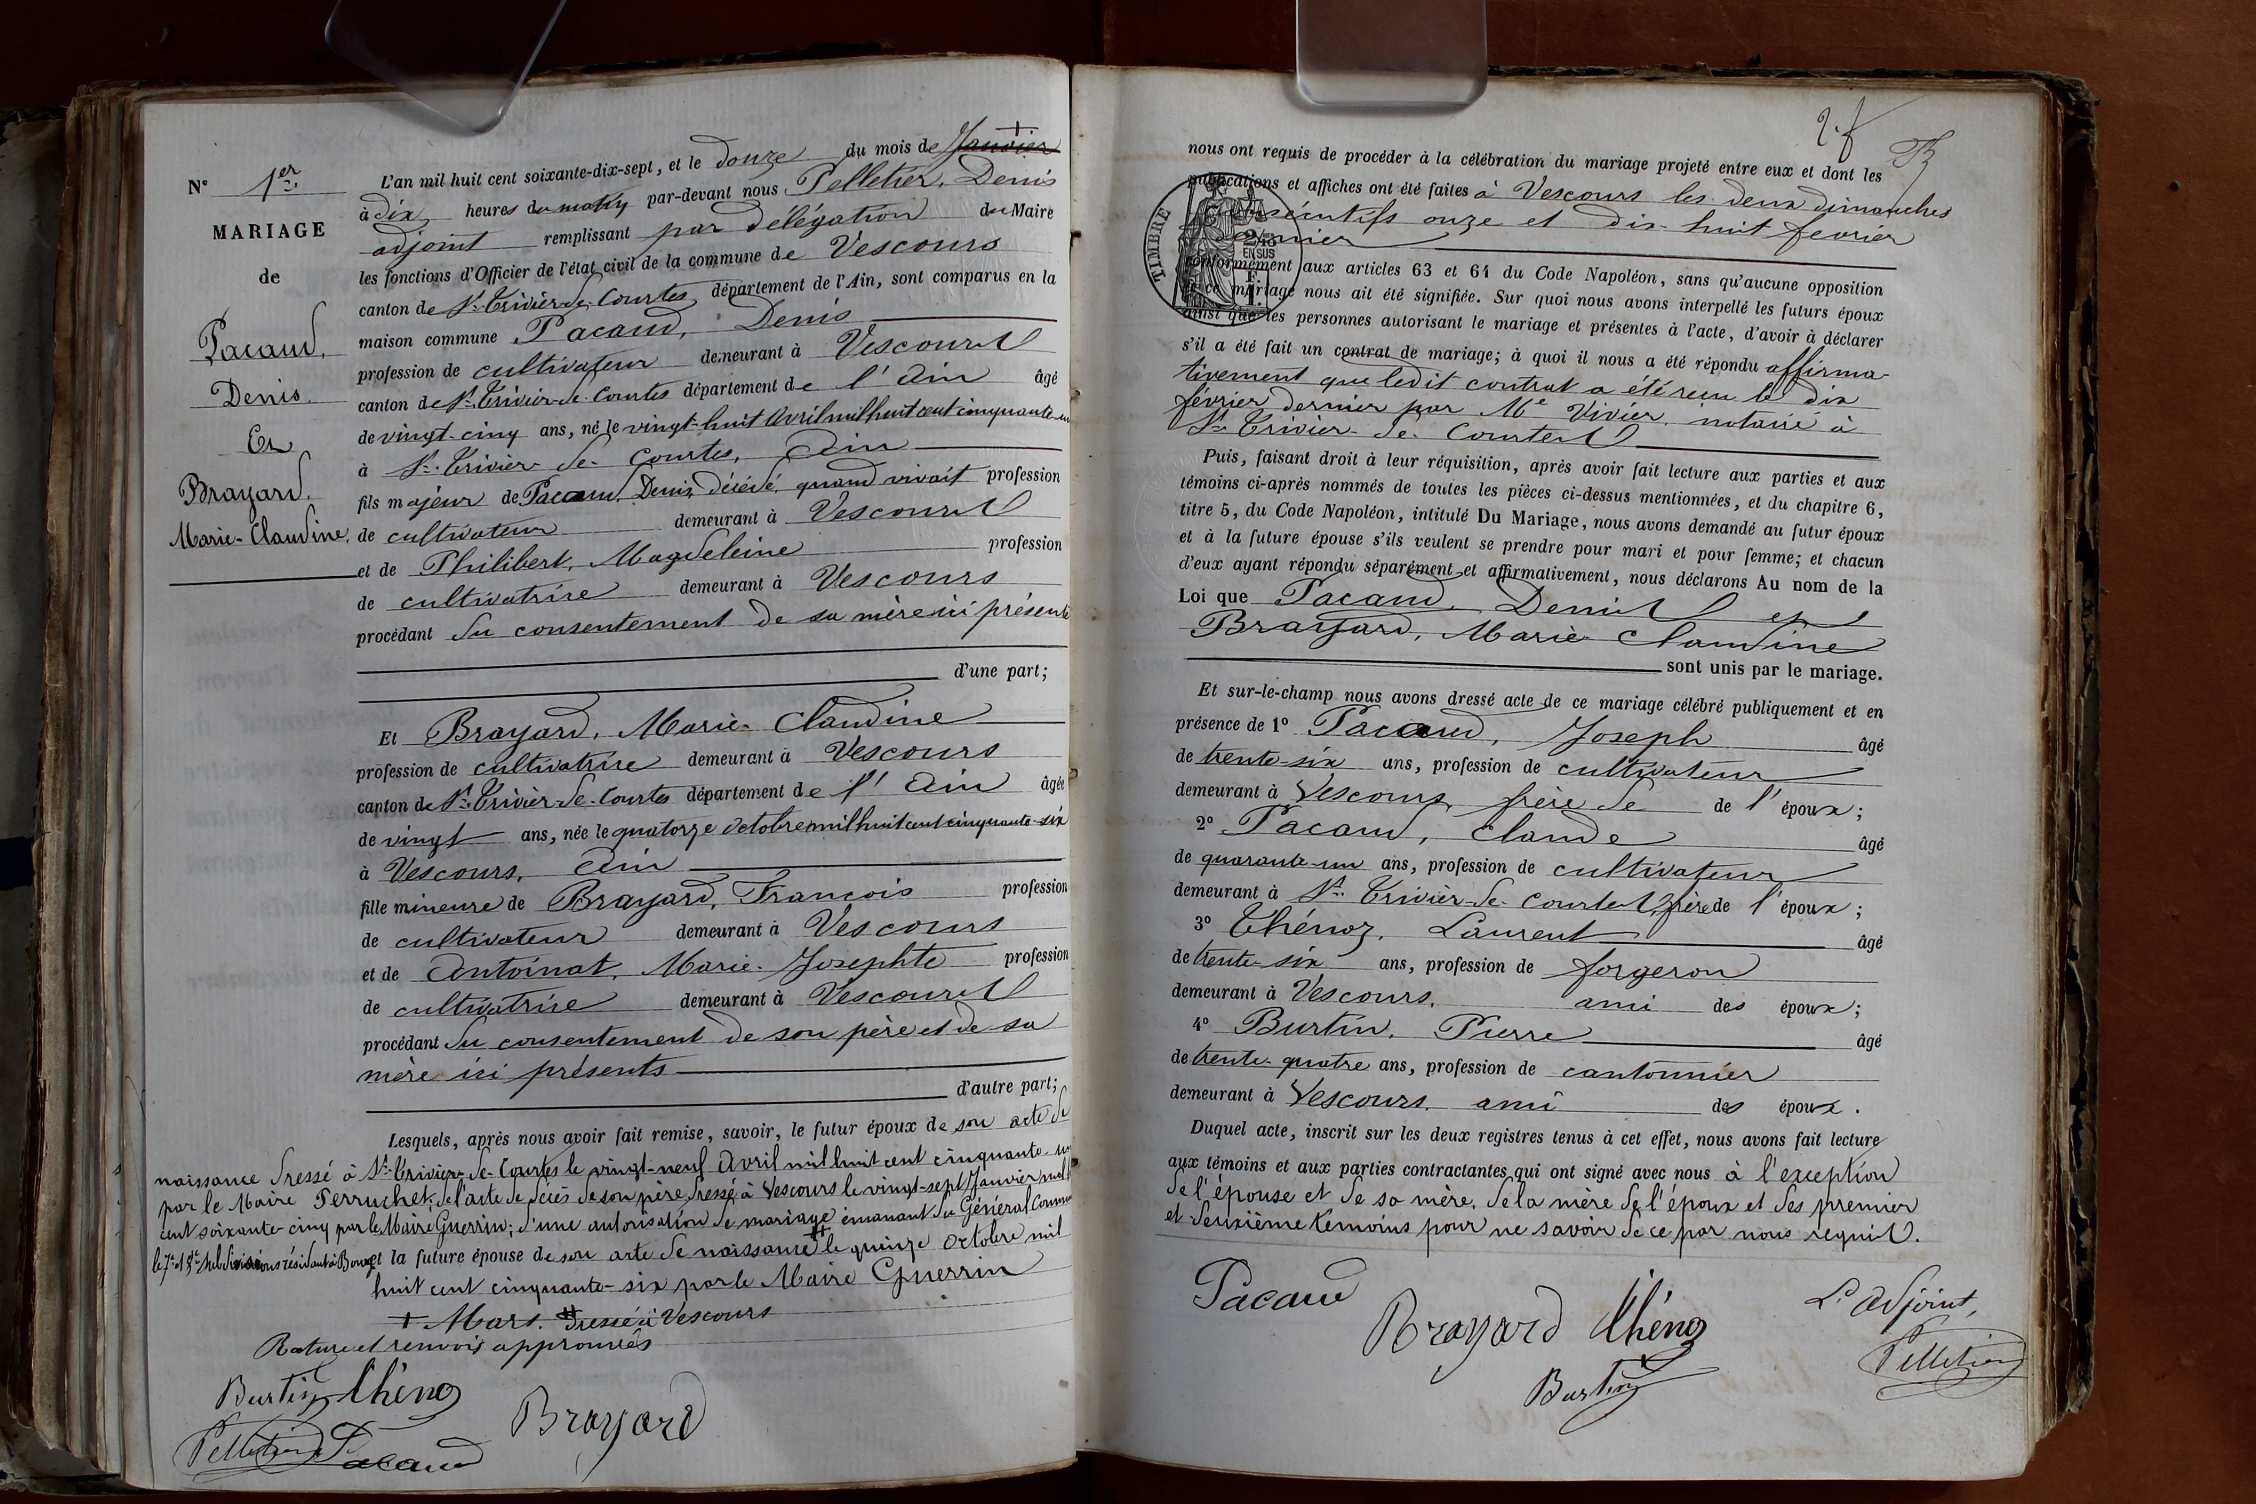 N° 1er
MARIAGE
de
Pacaud,
Denis.
Et
Brayard.
Marie-Claudine.
L'an mil huit cent soixante-dix-sept, et le douze du mois de Janvier +
à dix heures du matin par-devant nous Pelletier, Denis
adjoint remplissant par délégation du Maire
les fonctions d'Officier de l'état civil de la commune de Vescours
canton de St. Trivier-de-Courtes, département de l'Ain, sont comparus en la
maison commune Pacaud, Denis
profession de cultivateur demeurant à Vescours
canton de St. Trivier-de-Courtes département de l'Ain âgé
de vingt-cinq ans, né le vingt-huit Avril mil huit cent cinquante-un
à St. Trivier-de-Courtes, Ain
fils majeur de Pacaud, Denis, décédé, quand vivait profession
de cultivateur demeurant à Vescours
et de Philibert, Magdeleine profession
de cultivatrice demeurant à Vescours
procédant du consentement de sa mère ici présente
d'une part;
Et Brayard, Marie-Claudine
profession de cultivatrice demeurant à Vescours
canton de St. Trivier-de-Courtes département de l'Ain âgée
de vingt ans, née le quatorze octobre mil huit cent cinquante-six
à Vescours, Ain
fille mineure de Brayard, Francois profession
de cultivateur demeurant à Vescours
et de Antoinat, Marie-Josephte profession
de cultivatrice demeurant à Vescours
procédant du consentement de son père et de sa
mère ici présents
d'autre part;
Lesquels, après nous avoir fait remise, savoir, le futur époux de son acte de
naissance dressé à St. Trivier-de-Courtes le vingt-neuf Avril mil huit cent cinquante-un
par le Maire Perruchet; de l'acte de décès de son père dressé à Vescours le vingt-sept Janvier mil
cent soixante-cinq par le Maire Guerrin; d'une autorisation de mariage émanant du Général
le 7e et 8e subdivisions résidant à Bourg et la future épouse de son acte de naissance # le quinze octobre mil
huit cent cinquante-six par le Maire Guerrin
+ Mars. # Dressé à Vescours
Rature et renvois approuvés
Burtin Thénoz
Brayard
Pelletier Pacaud
2.f
nous ont requis de procéder à la célébration du mariage projeté entre eux et dont les
publications et affiches ont été faites à Vescours les deux dimanches
consécutifs onze et dix-huit fevrier
dernier
TIMBRE
2/10
EN SUS
conformément aux articles 63 et 64 du Code Napoléon, sans qu'aucune opposition
à ce mariage nous ait été signifiée. Sur quoi nous avons interpellé les futurs époux
ainsi que les personnes autorisant le mariage et présentes à l'acte, d'avoir à déclarer
s'il a été fait un contrat de mariage; à quoi il nous a été répondu affirma-
tivement que ledit contrat a été reçu le dix
février dernier par Me Vivier, notaire à
St. Trivier-de-Courtes
Puis, faisant droit à leur réquisition, après avoir fait lecture aux parties et aux
témoins ci-après nommés de toutes les pièces ci-dessus mentionnées, et du chapitre 6,
titre 5, du Code Napoléon, intitulé Du Mariage, nous avons demandé au futur époux
et à la future épouse s'ils veulent se prendre pour mari et pour femme; et chacun
d'eux ayant répondu séparément et affirmativement, nous déclarons Au nom de la
Loi que Pacaud, Denis et
Brayard, Marie-Claudine
sont unis par le mariage.
Et sur-le-champ nous avons dressé acte de ce mariage célébré publiquement et en
présence de 1° Pacaud, Joseph âgé
de trente-six ans, profession de cultivateur
demeurant à Vescours, frère de de l'époux;
2° Pacaud, Claude âgé
de quarante-un ans, profession de cultivateur
demeurant à St. Trivier-de-Courtes, frère de l'époux;
3° Thénoz, Laurent âgé
de trente-six ans, profession de forgeron
demeurant à Vescours, ami des époux;
4° Burtin, Pierre âgé
de trente-quatre ans, profession de cantonnier
demeurant à Vescours, ami des époux.
Duquel acte, inscrit sur les deux registres tenus à cet effet, nous avons fait lecture
aux témoins et aux parties contractantes qui ont signé avec nous à l'exception
de l'épouse et de sa mère, de la mère de l'époux et des premier
et deuxième témoins pour ne savoir de ce par nous requis.
Pacaud
Brayard Thénoz
Burtin
L'adjoint,
Pelletier